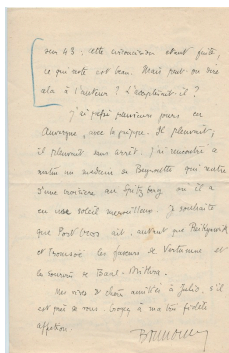 sur 43 : cette circoncision étant faite,
ce qui reste est beau. Mais peut-on dire
cela à l'auteur ? L'accepterait-il ?
J'ai passé plusieurs jours en
Auvergne, avec la grippe. Il pleuvait,
il pleuvait sans arrêt. J'ai rencontré ce
matin un médecin de qui rentre
d'une croisière au Spitzberg où il a
eu un soleil merveilleux. Je souhaite
que Port Cros ait, autant que Reikjavik
et Tromsoë, les faveurs de Vertumne et
le sourire de Baal-Mithra.
Mes vives et chères amitiés à , s'il
est près de vous. Croyez à ma très fidèle
affection.